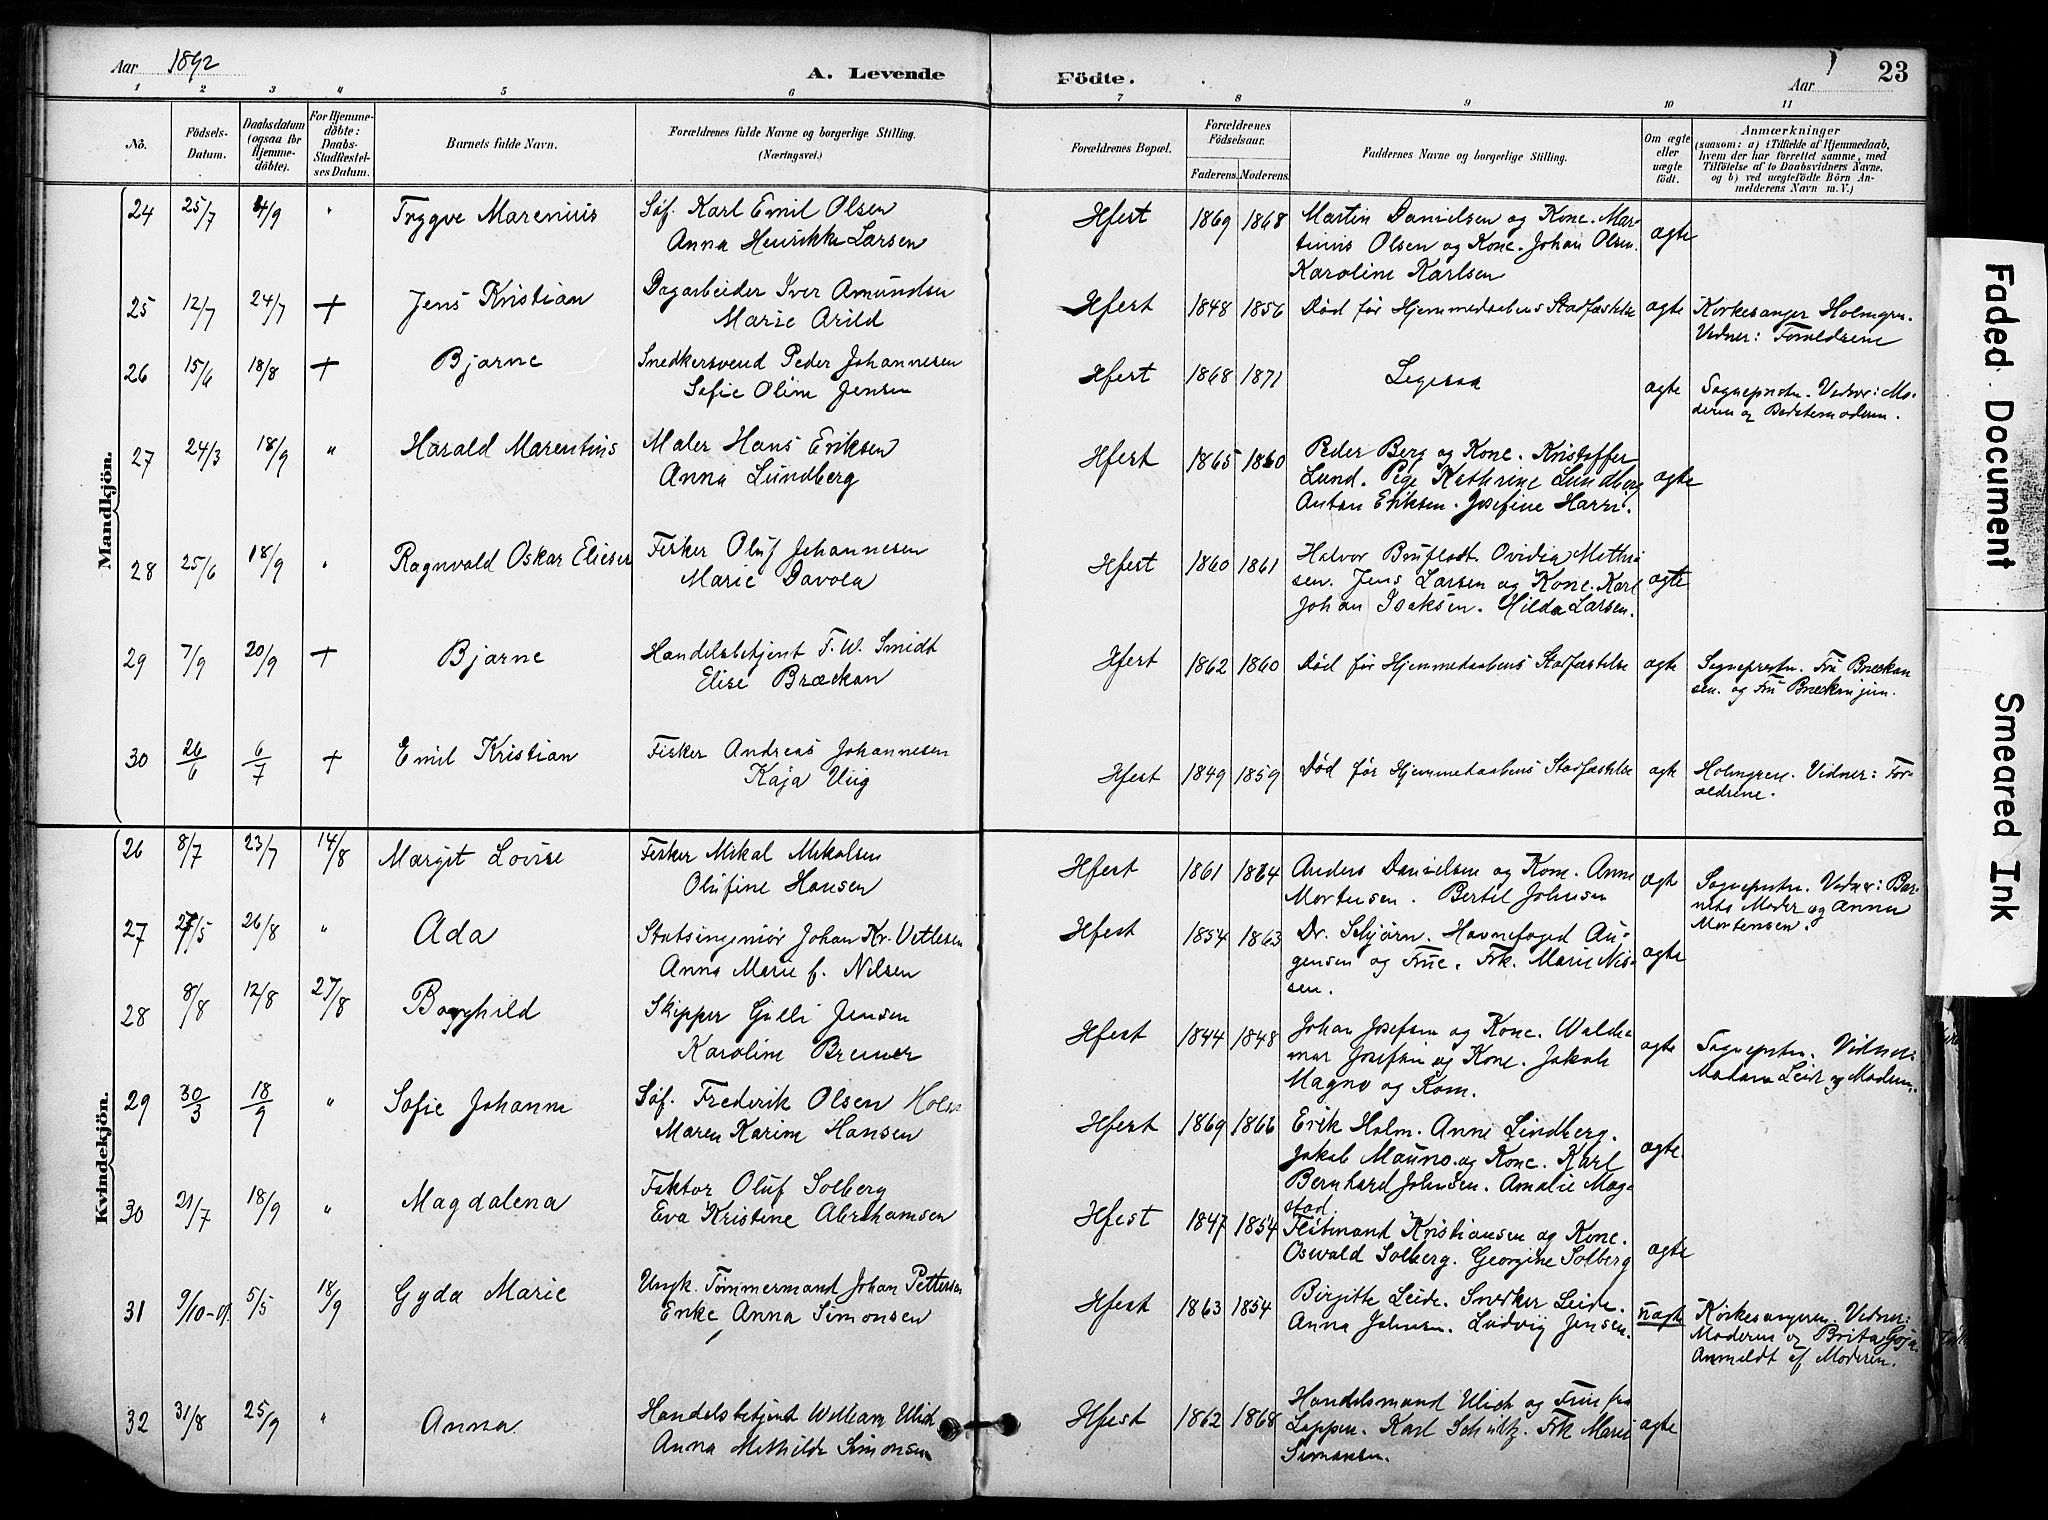 Aar 1892
A. Levende Födte.
Aar
23
1 2 3 4 5 6 7 8 9 10 11
No.
Födsels-Datum.
Daabsdatum (ogsaa for Hjemme-döbte).
For Hjemme-döbte: Daabs-Stadfæstel-ses Datum.
Barnets fulde Navn.
Forældrenes fulde Navne og borgerlige Stilling.
(Næringsvei.)
Forældrenes Bopæl.
Forældrenes Födselsaar.
Faderens. Moderens.
Faddernes Navne og borgerlige Stilling.
Om ægte eller uægte födt.
Anmærkninger
(saasom: a) i Tilfælde af Hjemmedaab, hvem der har forrettet samme, med Tilföielse af to Daabsvidners Navne, og b) ved uægtefödte Börn An-melderens Navn m. V.)
Mandkjön.
24 25/7 4/9 " Trygve Marenius Søf. Karl Emil Olsen Hfest 1869 1868 Martin Danielsen og Kone. Mar-
Anna Henrikke Larsen tinus Olsen og Kone. Johan Olsen. ægte
Karoline Karlsen
25 12/7 24/7 + Jens Kristian Dagarbeider Iver Amundsen Hfest 1848 1856 Død før Hjemmedaabens Stadfæstelse ægte Kirkesanger Holmgren.
Marie Arild Vidner: Forældrene
26 15/6 18/8 + Bjarne Snedkersvend Peder Johannesen Hfest 1868 1871 Ligesaa ægte Sogneprsten. Vidner: Mo-
Sofie Oline Jensen deren og Bedstemoderen.
27 24/3 18/9 " Harald Marentius Maler Hans Eriksen Hfest 1865 1860 Peder Berg og Kone. Kristoffer
Anna Lundberg Lund. Pige Kathrine Lundberg ægte
Anton Eriksen. Josefine Harri.
28 25/6 18/9 " Ragnvald Oskar Elieser Fisker Oluf Johannesen Hfest 1860 1861 Halvor Bruflodt. Ovidia Mathi-
Marie Davola sen. Jens Larsen og Kone. Karl ægte
Johan Isaksen. Hilda Larsen.
29 7/9 20/9 + Bjarne Handelsbetjent F. W. Smidt Hfest 1862 1860 Død før Hjemmedaabens Stadfæstelse ægte Sogneprsten. Fru Bræckan
Elise Bræckan sen. og Fru Bræckan jun.
30 26/6 6/7 + Emil Kristian Fisker Andreas Johannesen Hfest 1849 1859 Død før Hjemmedaabens Stadfæstelse ægte Holmgren. Vidner: For-
Kaja Uug ældrene.
Kvindekjön.
26 8/7 23/7 14/8 Margit Lovise Fisker Mikal Mikalsen Hfest 1861 1864 Anders Danielsen og Kone. Anne ægte Sogneprsten. Vidner: Bar-
Olufine Hansen Mortensen. Bertel Johnsen nets Moder og Anna
Mortensen.
27 27/5 26/8 " Ada Statsingeniør Johan Kr. Vetlesen Hfest 1854 1863 Dr. Schjørn. Havnefoged Au-
Anna Marie f. Nilsen gensen og Frue. Frk. Marie Nis- ægte
sen.
28 8/8 12/8 27/8 Borghild Skipper Gulli Jensen Hfest 1844 1848 Johan Josefsen og Kone. Walde- ægte Sogneprsten. Vidner:
Karoline Bremer mar Josefsen og Kone. Jakob Madam Leide og Moderen.
Magno og Kone.
29 30/3 18/9 " Sofie Johanne Søf. Frederik Olsen Holm Hfest 1869 1866 Erik Holm. Anne Lindberg.
Maren Karine Hansen Jakob Mauno og Kone. Karl ægte.
Bernhard Johnsen. Amalie Mag-
stad.
30 21/7 18/9 " Magdalena Faktor Oluf Solberg Hfest 1847 1854 Flotmand Kristiansen og Kone.
Eva Kristine Abrahamsen Oswald Solberg. Georgine Solberg ægte
31 9/10-91 5/5 18/9 Gyda Marie Ungk. Tømmermand Johan Pettersen Hfest 1863 1854 Birgitte Leide. Snedker Leide. uægte Kirkesangeren. Vidner:
Enke Anna Simonsen Anna Johnsen. Ludvig Jensen. Moderen og Brita Goja.
Anmeldt af Moderen.
32 31/8 25/9 " Anna Handelsbetjent William Ulich Hfest 1862 1868 Handelsmand Ulich og Frue fra
Anna Mathilde Simonsen Loppen. Karl Schultz. Frk Marie ægte
Simonsen.
Faded Document
Smeared Ink